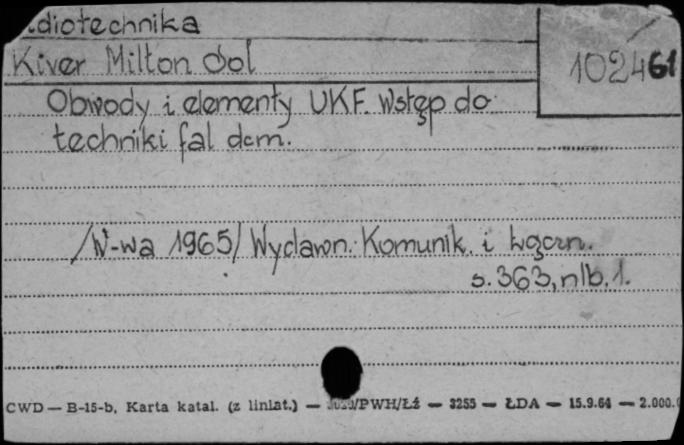 diotechnika
Kiver Milton Sol
102461
Obwody i elementy UKF. Wstęp do
techniki fal dcm.
/W-wa 1965/ Wydawn. Komunik. i Łączn.
s. 363, nlb. 1.
CWD — B-15-b, Karta katal. (z liniat.) — /PWH/Łź — 3255 — ŁDA — 15.9.64 — 2.000.